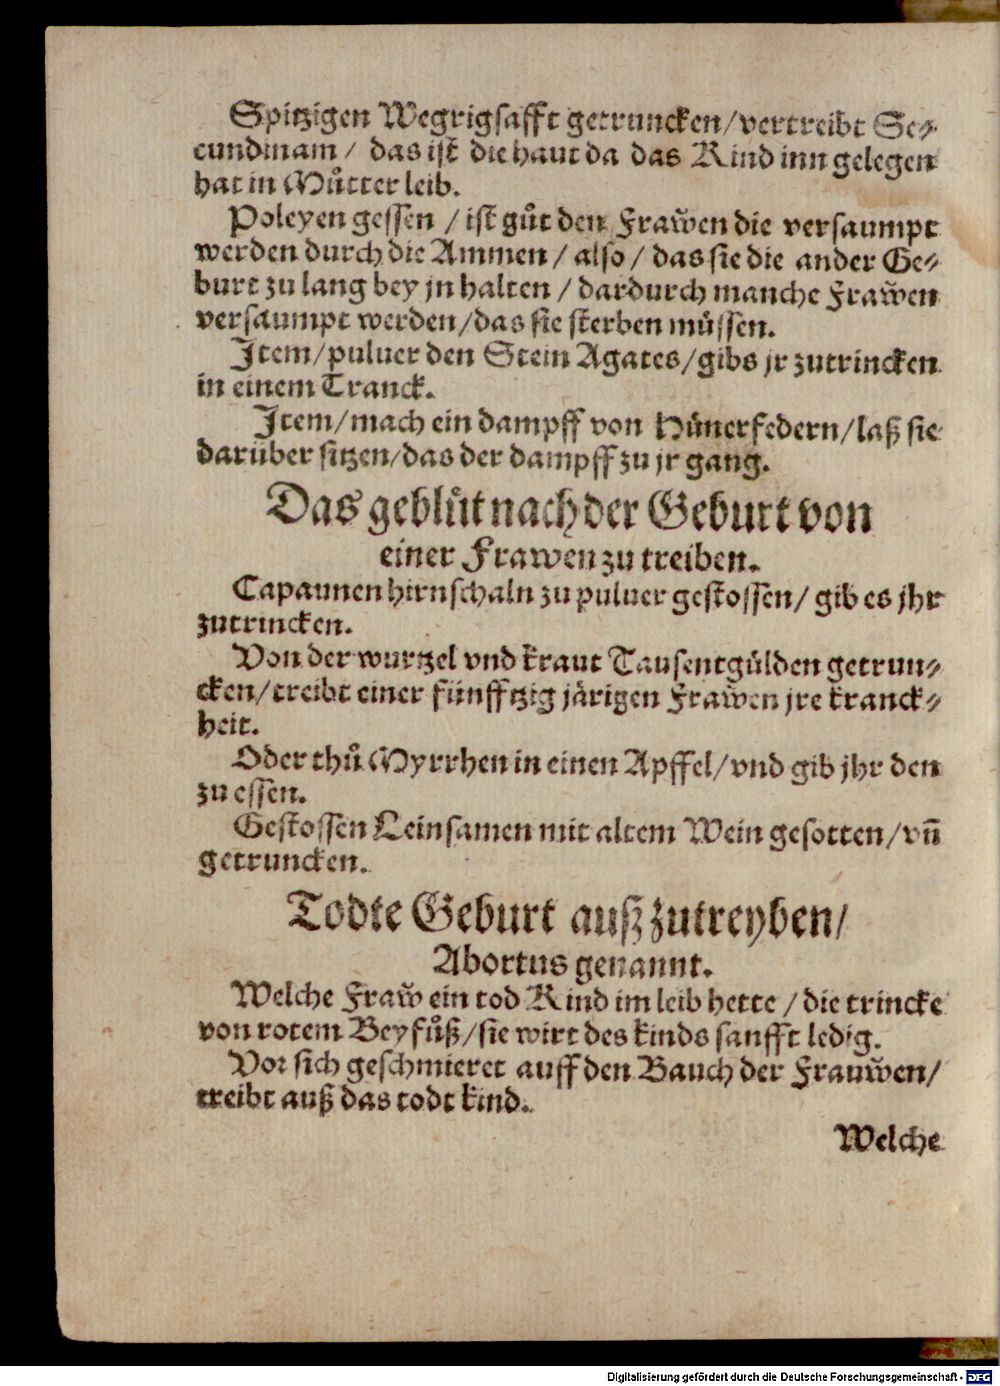 Spitzigen Wegrigsafft getruncken/vertreibt Se⸗
cundinam / das ist die haut da das Kind inn gelegen
hat in Můtter leib.
Poleyen gessen / ist gůt den Frawen die versaumpt
werden durch die Ammen / also / das sie die ander Ge⸗
burt zu lang bey jn halten / dardurch manche Frawen
versaumpt werden/das sie sterben müssen.
Item/puluer den Stein Agates/gibs jr zutrincken
in einem Tranck.
Item/mach ein dampff von Hünerfedern/laß sie
darüber sitzen/das der dampff zu jr gang.
Das geblůt nach der Geburt von
einer Frawen zu treiben.
Capaunen hirnschaln zu puluer gestossen/ gib es jhr
zutrincken.
Von der wurtzel vnd kraut Tausentgülden getrun⸗
cken/treibt einer fünfftzig järigen Frawen jre kranck⸗
heit.
Oder thů Myrrhen in einen Apffel/vnd gib jhr den
zu essen.
Gestossen Leinsamen mit altem Wein gesotten/vñ
getruncken.
Todte Geburt auß zutreyben/
Abortus genannt.
Welche Fraw ein tod Kind im leib hette / die trincke
von rotem Beyfůß/sie wirt des kinds sanfft ledig.
Vor sich geschmieret auff den Bauch der Frauwen/
treibt auß das todt kind.
Welche
Digitalisierung gefördert durch die Deutsche Forschungsgemeinschaft - DFG